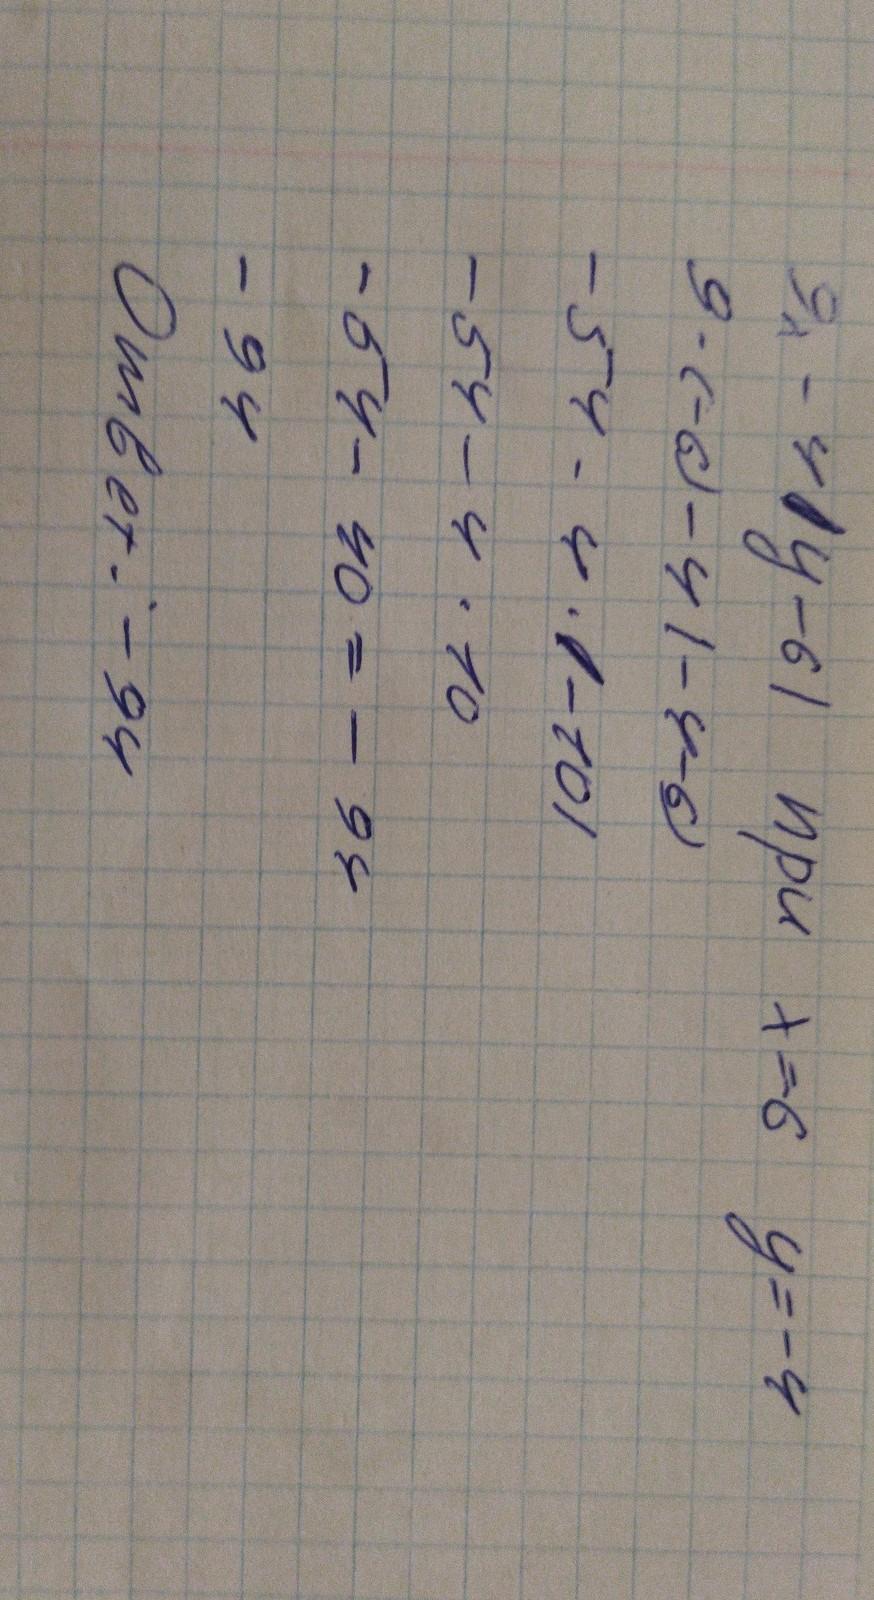 9x - 4|y-6| при x=6 y=-4
9·(-6)-4|-4-6|
-54-4·|-10|
-54-4·10
-54-40=-94
-94
Ответ: -94